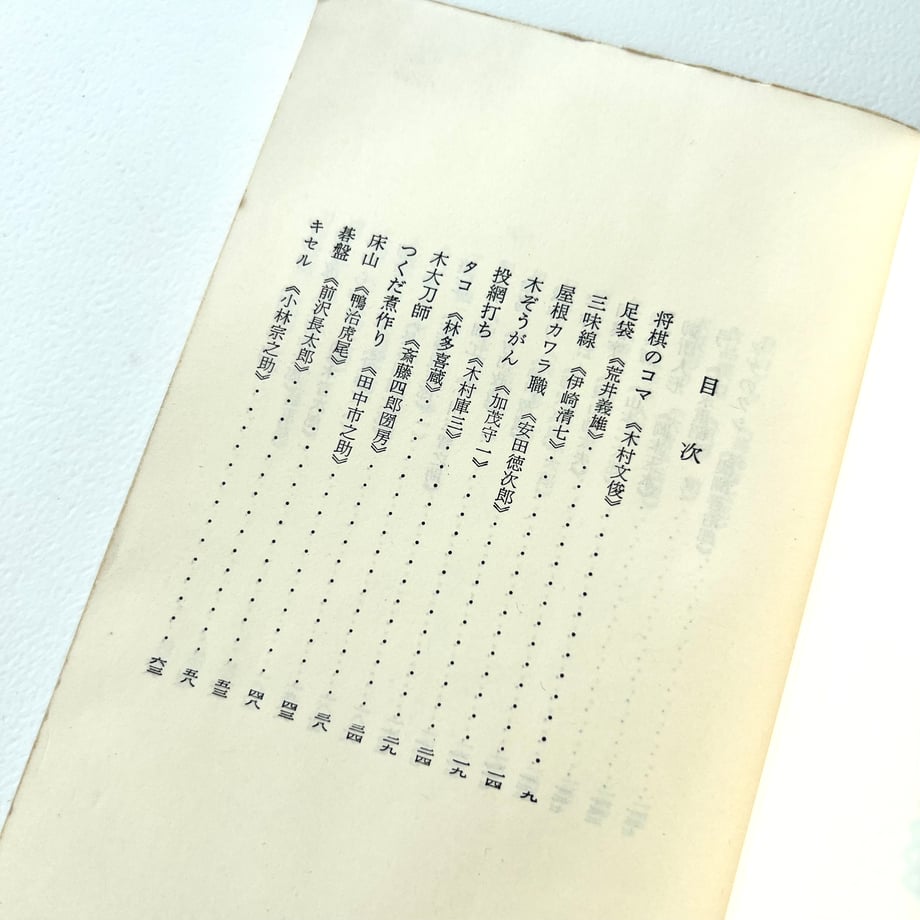 目次
将棋のコマ《木村文俊》・・・・・・・・・・九
足袋《荒井義雄》・・・・・・・・・・一四
三味線《伊崎清七》・・・・・・・・・・一九
屋根カワラ職《安田徳次郎》・・・・・・・・・・二四
木ぞうがん《加茂守一》・・・・・・・・・・二九
投網打ち《木村庫三》・・・・・・・・・・三四
タコ《林多喜蔵》・・・・・・・・・・三八
木大刀師《斎藤四郎圀房》・・・・・・・・・・四三
つくだ煮作り《田中市之助》・・・・・・・・・・四八
床山《鴨治虎尾》・・・・・・・・・・五三
碁盤《前沢長太郎》・・・・・・・・・・五八
キセル《小林宗之助》・・・・・・・・・・六三